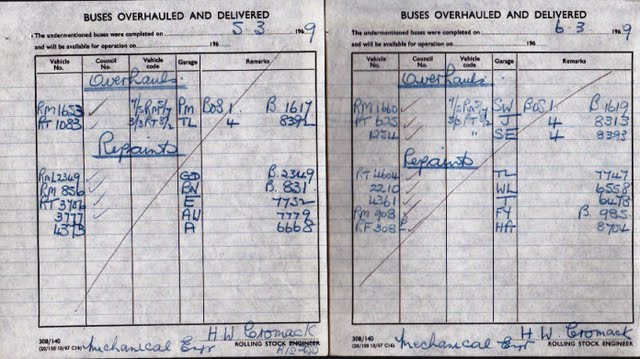 BUSES OVERHAULED AND DELIVERED
The undermentioned buses were completed on 5.3 1969
and will be available for operation on 196
Vehicle No. Council No. Vehicle code Garage Remarks
Overhauls
RM1653 ✓ 7/5RM5/7 PM BOS 1. B.1617
RT 1083 ✓ 3/3RT3/2 TL 4 8392
Repaints
RML2349 ✓ GD B.2349
RM 856 ✓ BN B. 831
RT 3702 ✓ E 7752
3777 ✓ AW 7779
4373 A 6668
H.W Cromack
308/140
Mechanical Engr ROLLING STOCK ENGINEER
BUSES OVERHAULED AND DELIVERED
The undermentioned buses were completed on 6.3 1969
and will be available for operation on 196
Vehicle No. Council No. Vehicle code Garage Remarks
Overhauls
RM1660 ✓ 7/5RM5/7 SW BOS 1. B.1619
RT 625 ✓ 3/3RT3/2 J 4 8313
1254 ✓ " SE 4 8393
Repaints
RT 4604 ✓ TL 7747
2210 ✓ WL 6558
4361 ✓ T 6478
RM 908 ✓ FY B. 985
RF 308 HA 8704
H.W Cromack
308/140
Mechanical Engr ROLLING STOCK ENGINEER